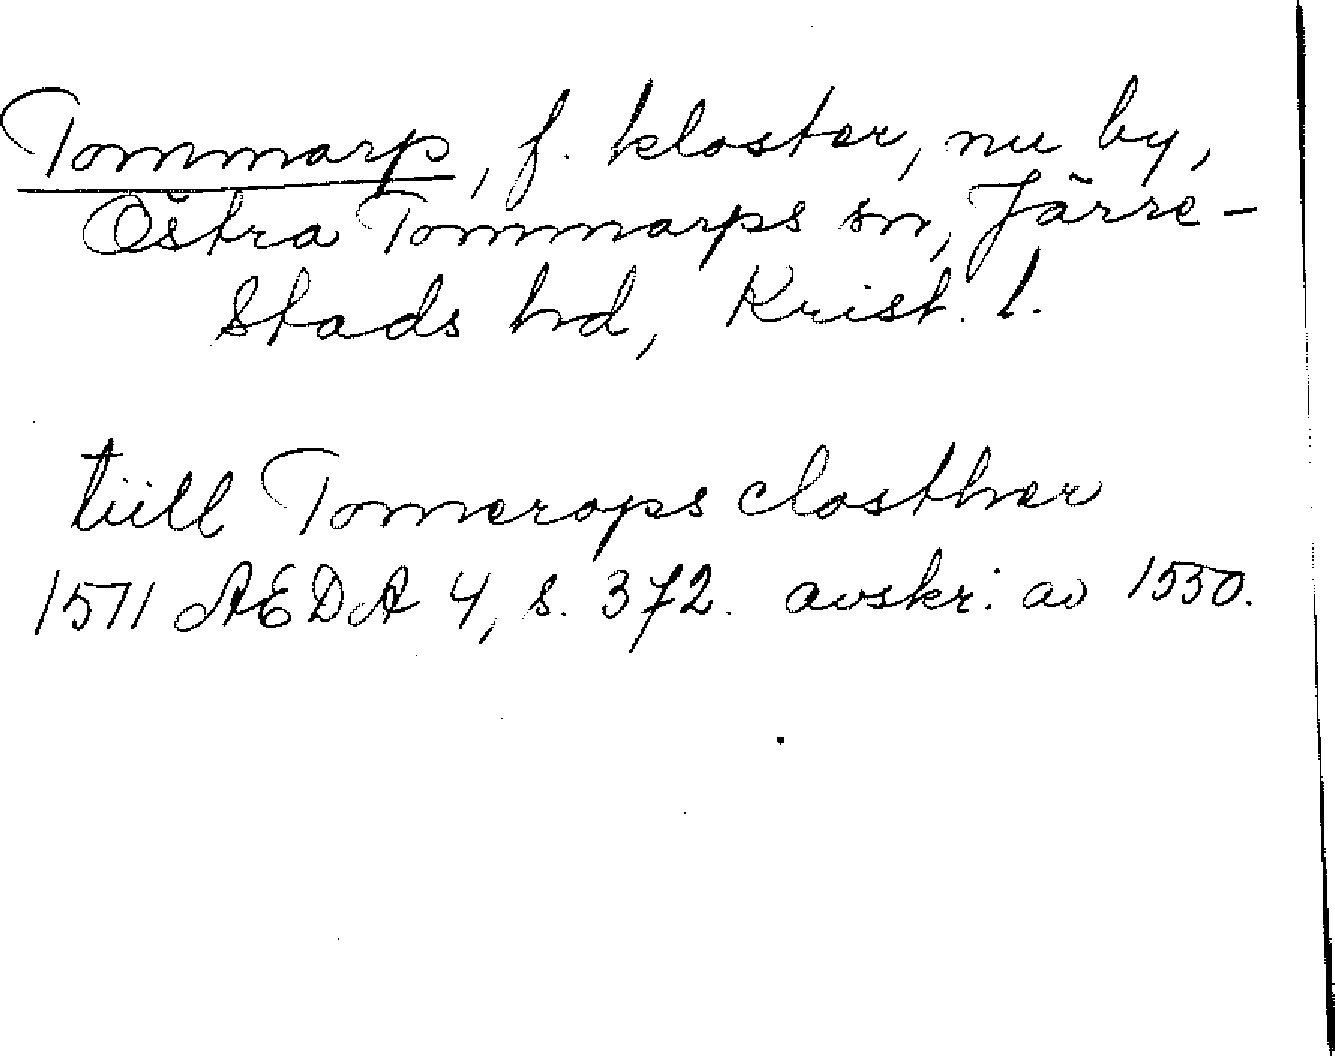 Tommarp, f. kloster, nu by,
Östra Tommarps sn, Järre-
stads hd, Krist. l.
tiill Tomerops closther
1571 AEDA 4, s. 372. avskr. av 1550.